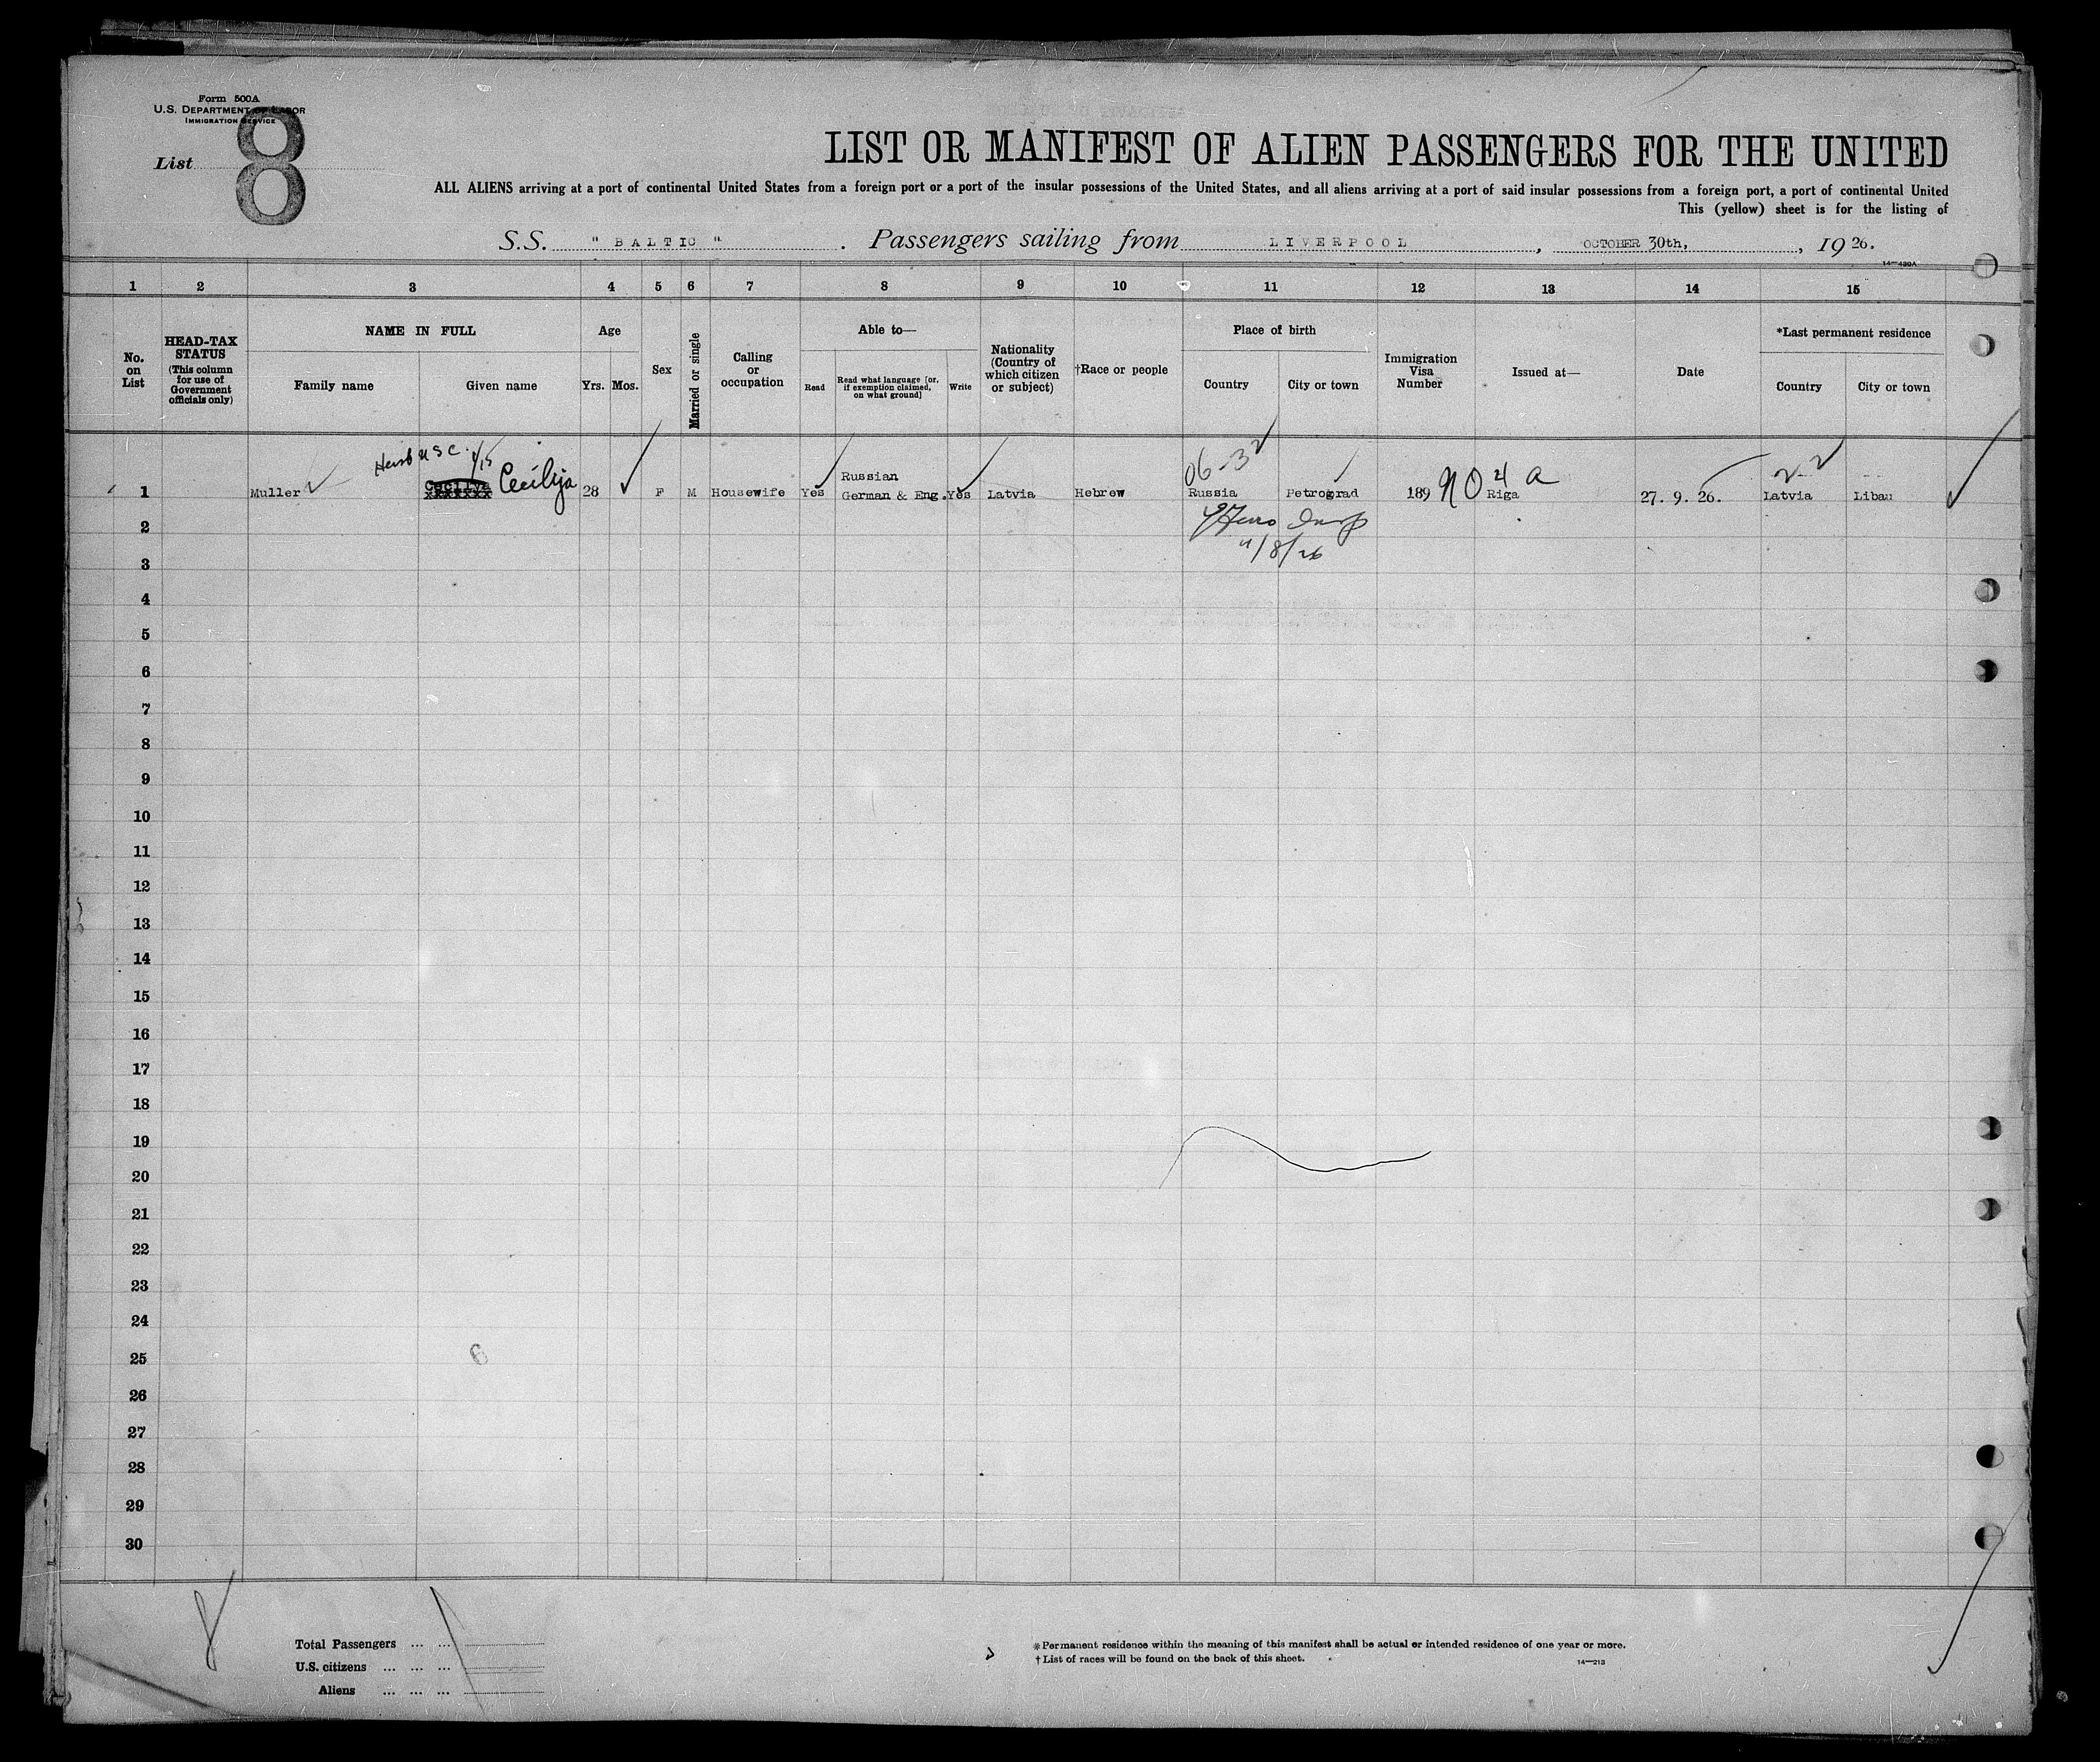 Form 500A
U.S. DEPARTMENT OF LABOR
IMMIGRATION SERVICE
List 8
LIST OR MANIFEST OF ALIEN PASSENGERS FOR THE UNITED
ALL ALIENS arriving at a port of continental United States from a foreign port or a port of the insular possessions of the United States, and all aliens arriving at a port of said insular possessions from a foreign port, a port of continental United
This (yellow) sheet is for the listing of
S.S. " BALTIC " . Passengers sailing from LIVERPOOL , OCTOBER 30th, , 19 26.
14—430A
1 2 3 4 5 6 7 8 9 10 11 12 13 14 15
No. on List
HEAD-TAX STATUS (This column for use of Government officials only)
NAME IN FULL
Family name Given name
Age
Yrs. Mos.
Sex
Married or single
Calling or occupation
Able to—
Read
Read what language [or, if exemption claimed, on what ground]
Write
Nationality (Country of which citizen or subject)
†Race or people
Place of birth
Country City or town
Immigration Visa Number
Issued at—
Date
*Last permanent residence
Country City or town
USC. 06-32
Russian
1 Muller Cecilya Cecilija 28 F M Housewife Yes German & Eng. Yes Latvia Hebrew Russia Petrograd 189 Riga 27. 9. 26. Latvia Libau
11/8/26
2
3
4
5
6
7
8
9
10
11
12
13
14
15
16
17
18
19
20
21
22
23
24
25 6
26
27
28
29
30
8
Total Passengers ... ...
U.S. citizens ... ... ...
Aliens ... ... ...
*Permanent residence within the meaning of this manifest shall be actual or intended residence of one year or more.
†List of races will be found on the back of this sheet.
14—213